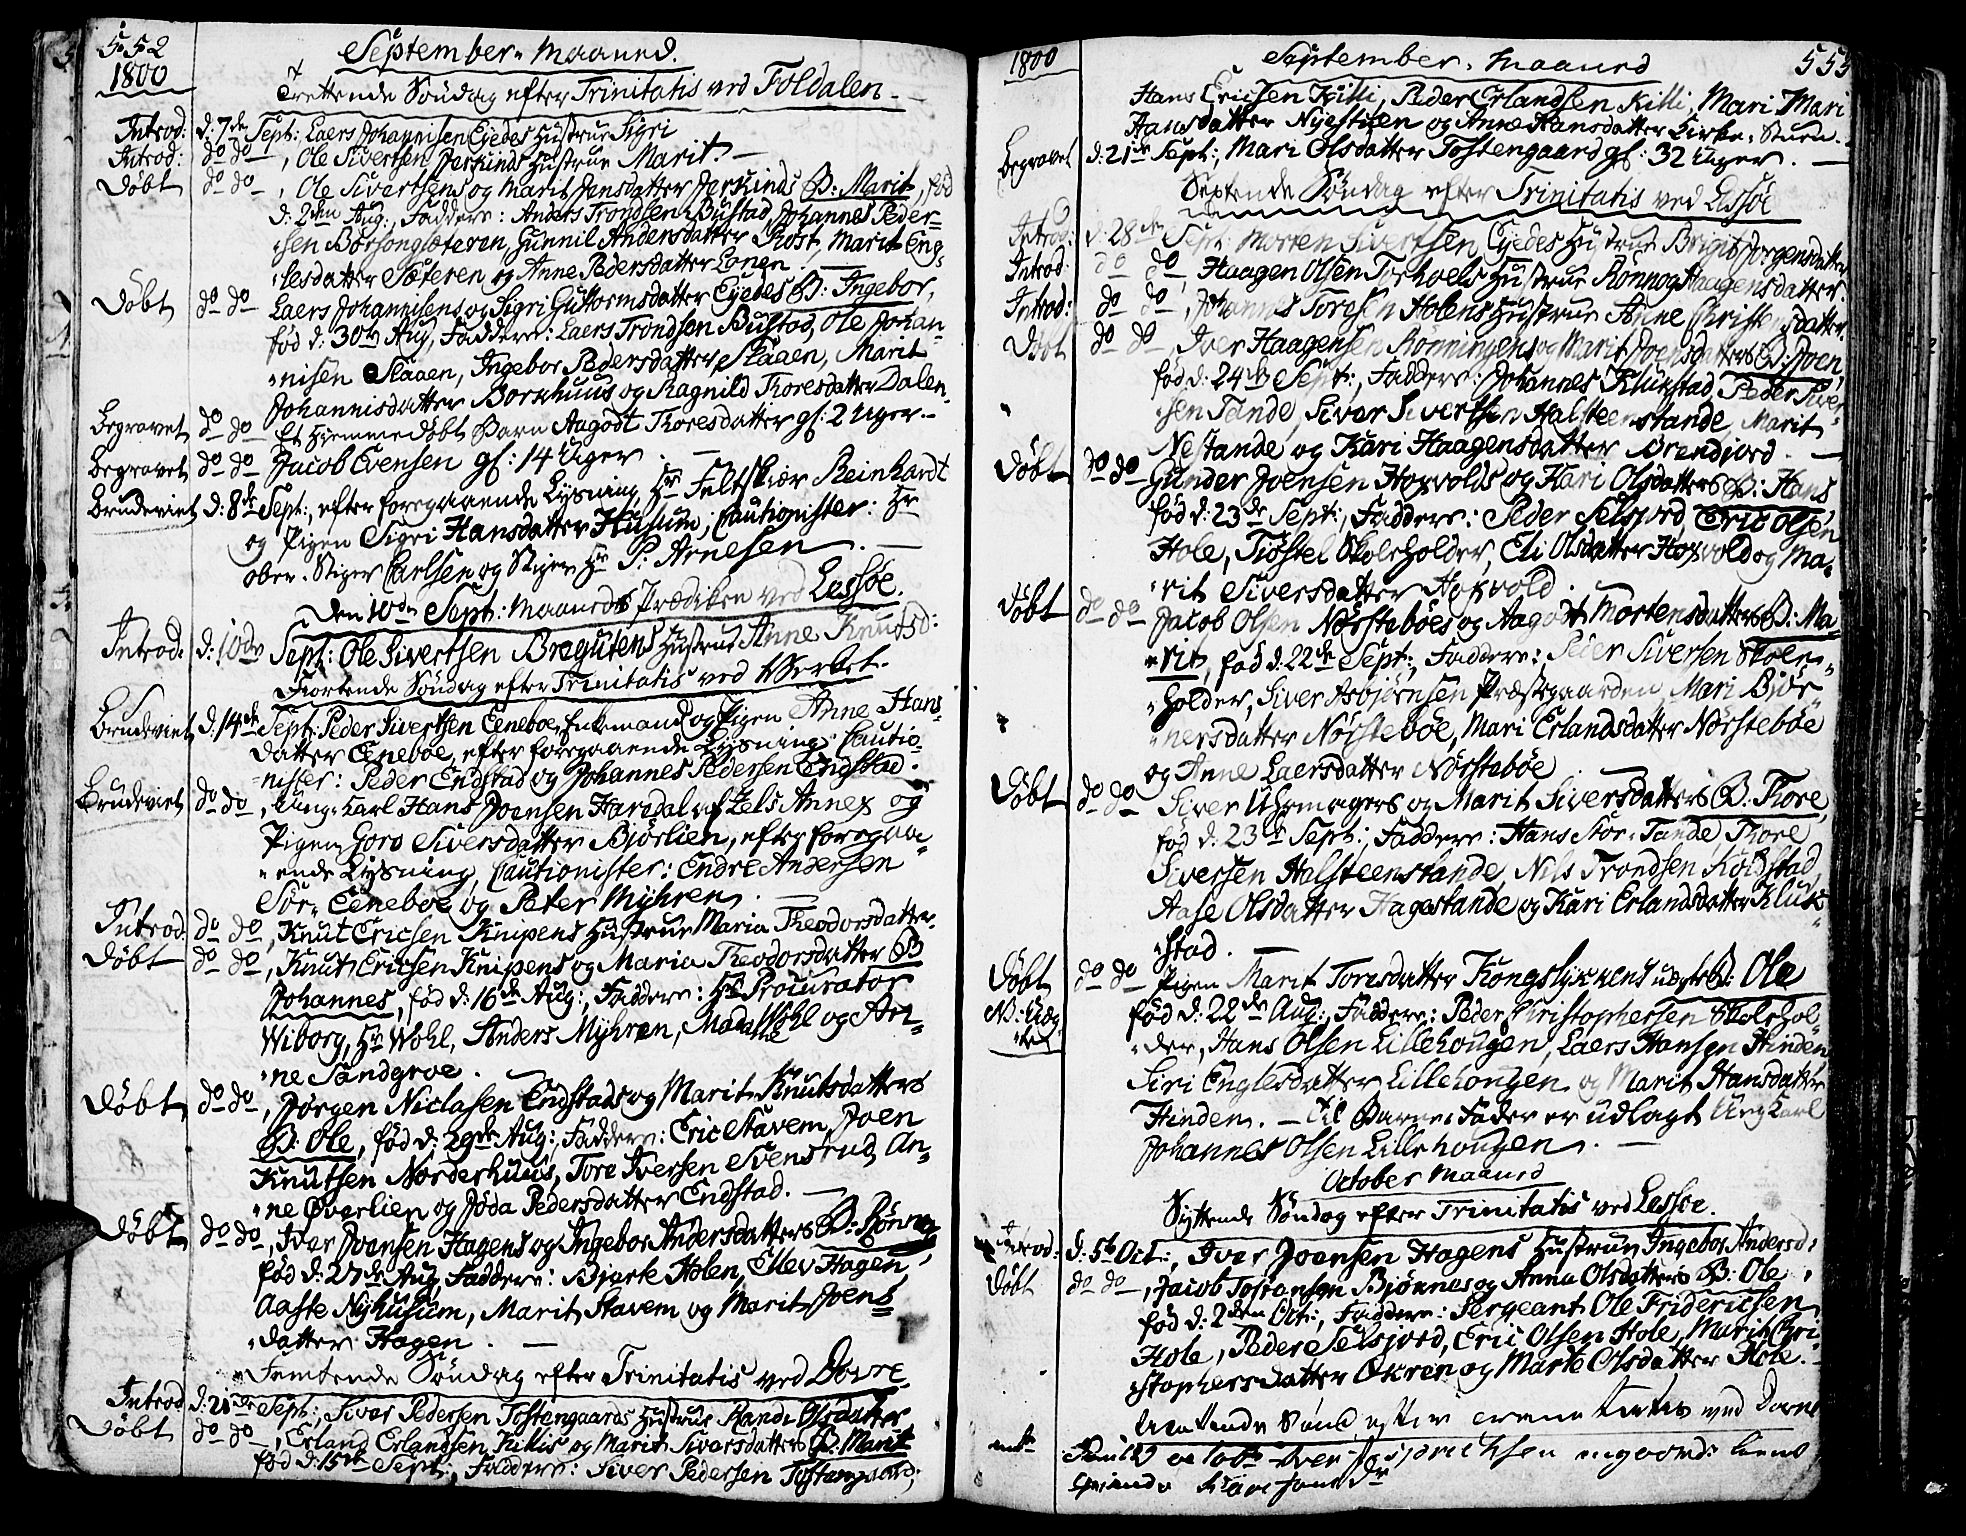 552
1800
September-Maaned.
Trettende Søndag efter Trinitatis ved Foldalen
Introd: d: 7de Sept: Laers Johannisen Eyedes Hustrue Sigri
Introd: do do, Ole Sivertsen Jerkinds Hustrue Marit. —
Døbt do do, Ole Sivertsens og Marit Jensdatter Jerkinds B: Marit, fød
d: 2den Aug:, Faddere: Anders Trondsen Bustad, Johannes Peder-
sen Børsongsæteren, Gunnil Andersdatter Rost, Marit Eng-
lesdatter Sæteren og Anne Pedersdatter Lonen
Døbt do do Laers Johannisens og Sigri Guttormsdatter Eyedes B: Ingebor,
fød d: 30te Aug, Faddere: Laers Trondsen Bustad, Ole Johan-
nisen Slaaen, Ingebor Pedersdatter Slaaen, Marit
Johannisdatter Borkhuus og Ragnild Thoresdatter Dalen.
Begravet do do Et Hjemmedøbt Barn Aagodt Thoresdatter gl: 2 Uger —
Begravet do do Jacob Evensen gl: 14 Uger. —
Brudeviet d: 8de Sept:, efter foregaaende Lysning, Hr Feltskiær Reinhardt
og Pigen Sigri Hansdatter Husum, Cautionister: Hr
ober-Stiger Carlsen og Stiger Hr P: Arnesen. —
Den 10de Sept: Maaneds Prædiken ved Lessøe.
Introd: d: 10de Sept: Ole Sivertsen Bregutens Hustrue Anne Knutsd:
Fiortende Søndag efter Trinitatis ved
Brudeviet d: 14de Sept: Peder Sivertsen Eeneboe Enkemand og Pigen Anne Hans-
datter Eeneboe, efter foregaaende Lysning, Cautio-
nister: Peder Endstad og Johannes Pedersen Endstad.
Brudeviet do do, Ung-Karl Hans Joensen Haredal af Lels Annex og
Pigen Goro Siversdatter Bjørlien, efter foregaa-
ende Lysning, Cautionister: Endre Andersen
Sør-Eeneboe og Peter Myhren
Introd. do do, Knut Ericsen Knipens Hustrue Maria Theodorsdatter.
Døbt do do, Knut Ericsen Knipens og Maria Theodorsdatter B
Johannes, fød d: 16de Aug:, Faddere: Hr Procurator
Wiborg, Hr Wohl, Anders Myhren, Madame Wohl og An-
ne Sandgroe. —
Døbt do do, Jørgen Niclasen Endstads og Marit Knutsdatters
B: Ole, fød d: 29de Aug:, Faddere: Eric Stavem, Joen
Knutsen Norderhuus, Tore Iversen Svenstrud, An-
ne Øverlien og Jøda Pedersdatter Endstad. —
Døbt do do, Iver Joensen Hagens og Ingebor Andersdatters B: Rønnog
fød d: 27de Aug, Faddere: Bjarte Holen, Ellev Hagen,
Aaste Nyhusum, Marit Stavem og Marit Joens
datter Hagen. —
Femtende Søndag efter Trinitatis ved Dovre
Introd d: 21de Sept: Siver Pedersen Tostengaards Hustrue Randi Olsdatter
Døbt do do, Erland Erlandsen Killis og Marit Siversdatters B: Marit
fød d: 15de Sept:, Faddere: Siver Pedersen Tostengaard,
1800
September-Maaned
553
Hans Ericsen Killi, Peder Erlandsen Killi, Mari Mari
Hansdatter Nyestuen og Anne Hansdatter Kirke-Stuen.
Begravet d: 21de Sept:, Mari Olsdatter Tostengaard gl: 32 Uger. —
Sextende Søndag efter Trinitatis ved Lessøe
Introd: d: 28de Sept: Morten Sivertsen Eyedes Hustrue Brigit Jørgensdatter
Introd: do do, Haagen Olsen Torhoels Hustrue Rønnog Haagensdatter.
Introd: do do, Johannes Toresen Holens Hustrue Anne Christensdatter
Døbt do do, Iver Haagensen Rønningens og Marit Joensdatters B: Joen,
fød d: 24de Sept:, Faddere: Johannes Klukstad, Peder Siver-
sen Tande, Siver Sivertsen Halsteenstande, Marit
Nestande og Kari Haagensdatter Brendjord. —
Døbt do do Gunder Joensen Hoxvolds og Kari Olsdatters B: Hans,
fød d: 23de Sept:, Faddere: Peder Selsjord, Eric Olsen
Hole, Tiøstel Skoleholder, Eli Olsdatter Hoxvold og Ma-
rit Siversdatter Hoxvold.
Døbt do do Jacob Olsen Nørstebøes og Aagodt Mortensdatters B: Ma-
rit, fød d: 22de Sept:, Faddere: Peder Siversen Skole-
holder, Siver Asbjørnsen Præstegaarden, Mari Bjør-
nersdatter Nørstebøe, Mari Erlandsdatter Nørstebøe
og Anne Laersdatter Nørstebøe
Døbt do do Siver Uhrmagers og Marit Siversdatters B: Thore,
fød d: 23de Sept:, Faddere: Hans Stor-Tande, Thore
Siversen Halsteenstande, Nils Trondsen Kolstad,
Aase Olsdatter Hagestande og Kari Erlandsdatter Kluk-
stad. —
Døbt do do Pigen Marit Toresdatter Kongslykkens uægte B: Ole
N: Uæg-
te
fød d: 22de Aug:, Faddere: Peder Christophersen Skolehol-
der, Hans Olsen Lillehougen, Laers Hansen Hinden
Siri Englesdatter Lillehougen og Marit Hansdatter
Hinden. — Til Barne-Fader er udlagt Ung Karl
Johannes Olsen Lillehougen. —
October Maaned
Syttende Søndag efter Trinitatis ved Lessøe.
Introd: d: 5te Oct:, Iver Joensen Hagens Hustrue Ingebor Andersd:
Døbt do do, Jacob Tostensen Bjønnes og Anna Olsdatters B: Ole,
fød d: 2den Oct:, Faddere: Sergeant Ole Fridericsen
Hole, Peder Selsjord, Eric Olsen Hole, Marit Chri-
stophersdatter Økren og Marte Olsdatter Hole. —
Attende Sønd efter Trinitatis ved Dovre